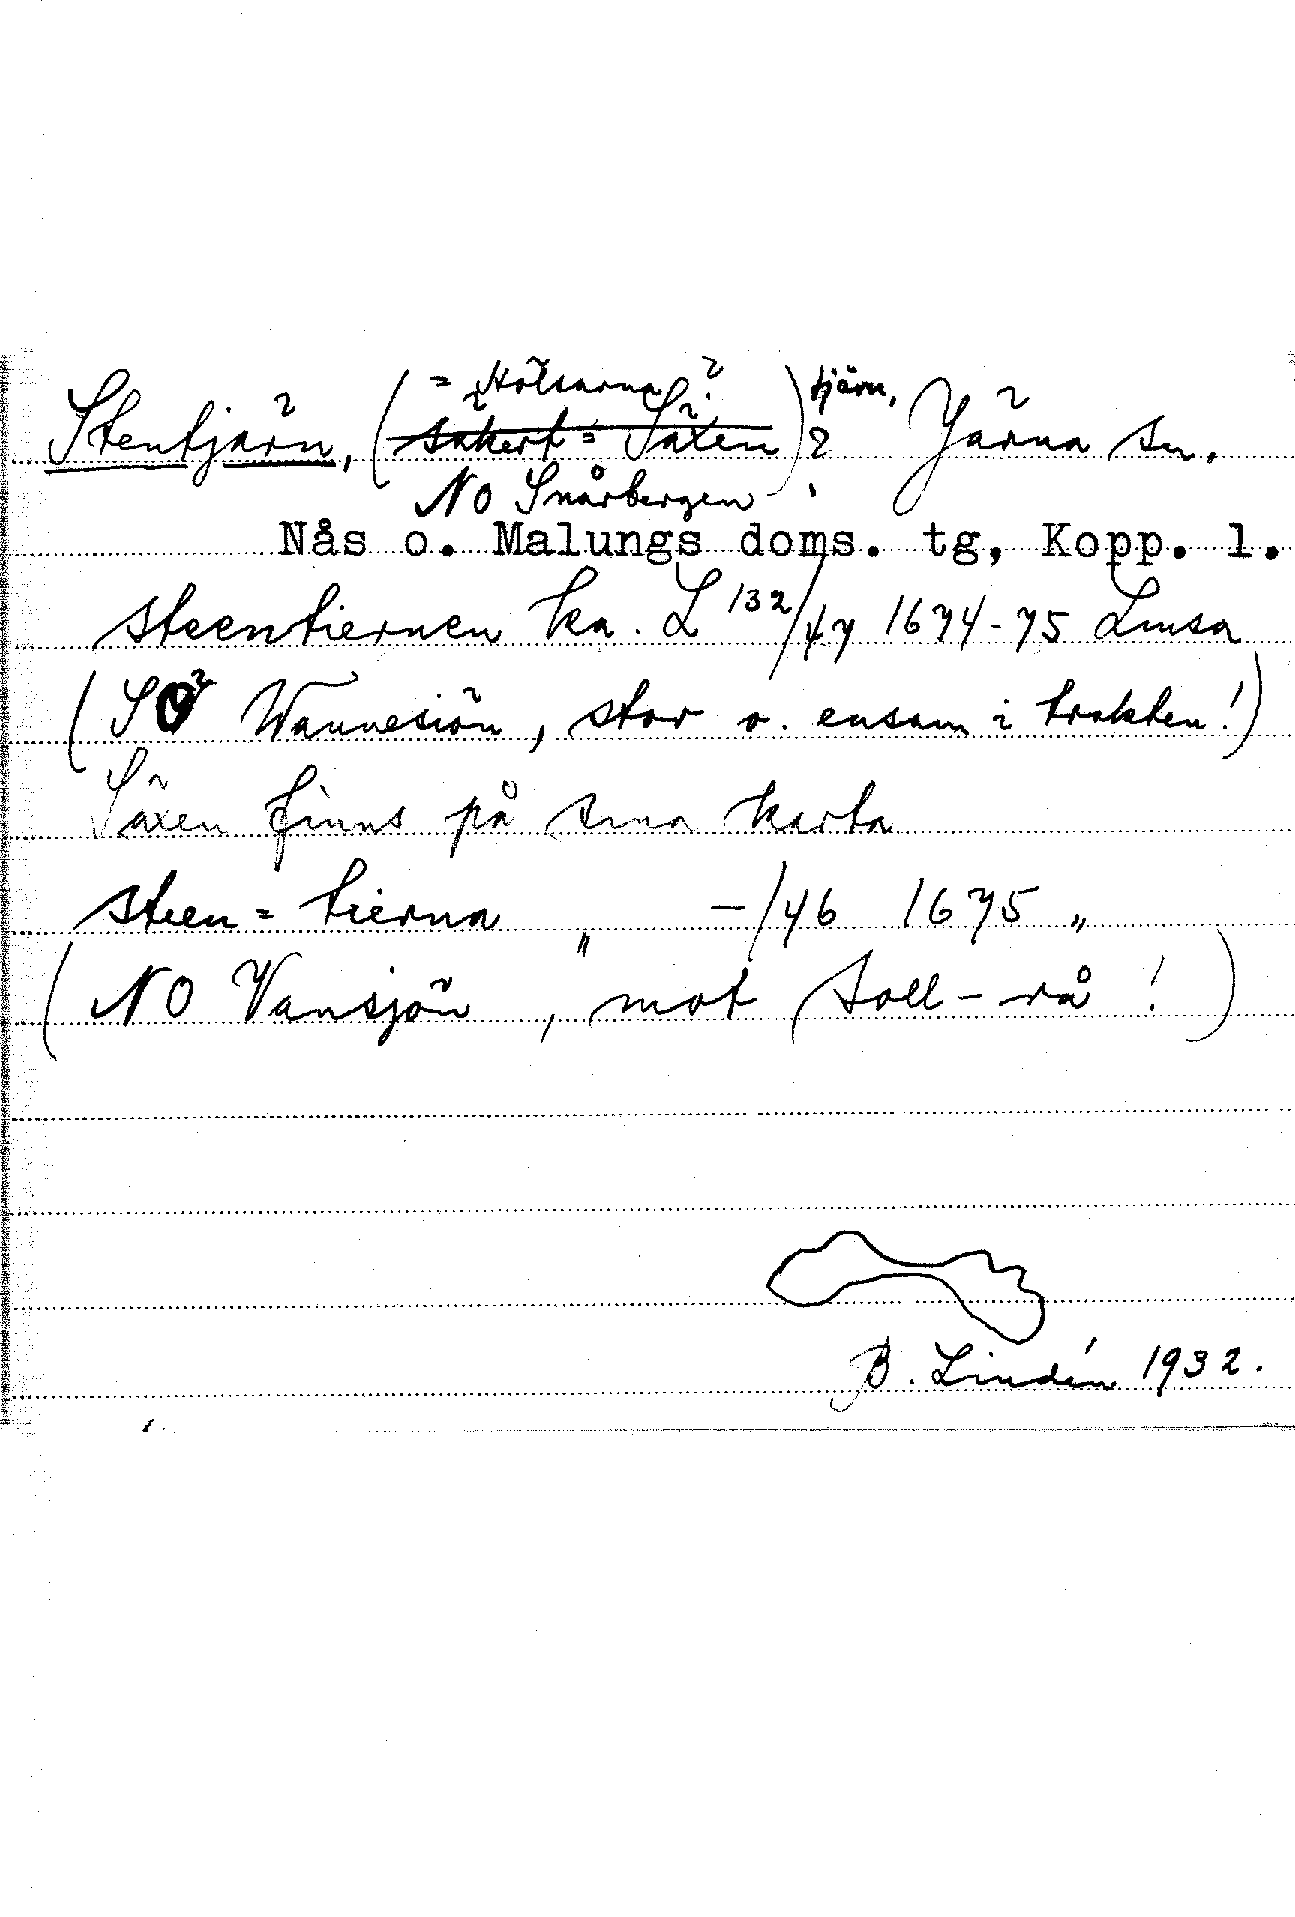 = Kölsarna ?
Stentjärn, (säkert = Säxen)? tjärn, Järna sn.
NO Snårbergen
Nås o. Malungs doms. tg, Kopp. l.
steentiernen ka. L 132/47 1674-75 Lmsa
(SO Wannesiön, stor o. ensam i trakten!)
Säxen finns på sma karta
steen = tierna " -/46 1675 "
(NO Vansjön, mot Soll-rå!)
B. Lindén 1932.